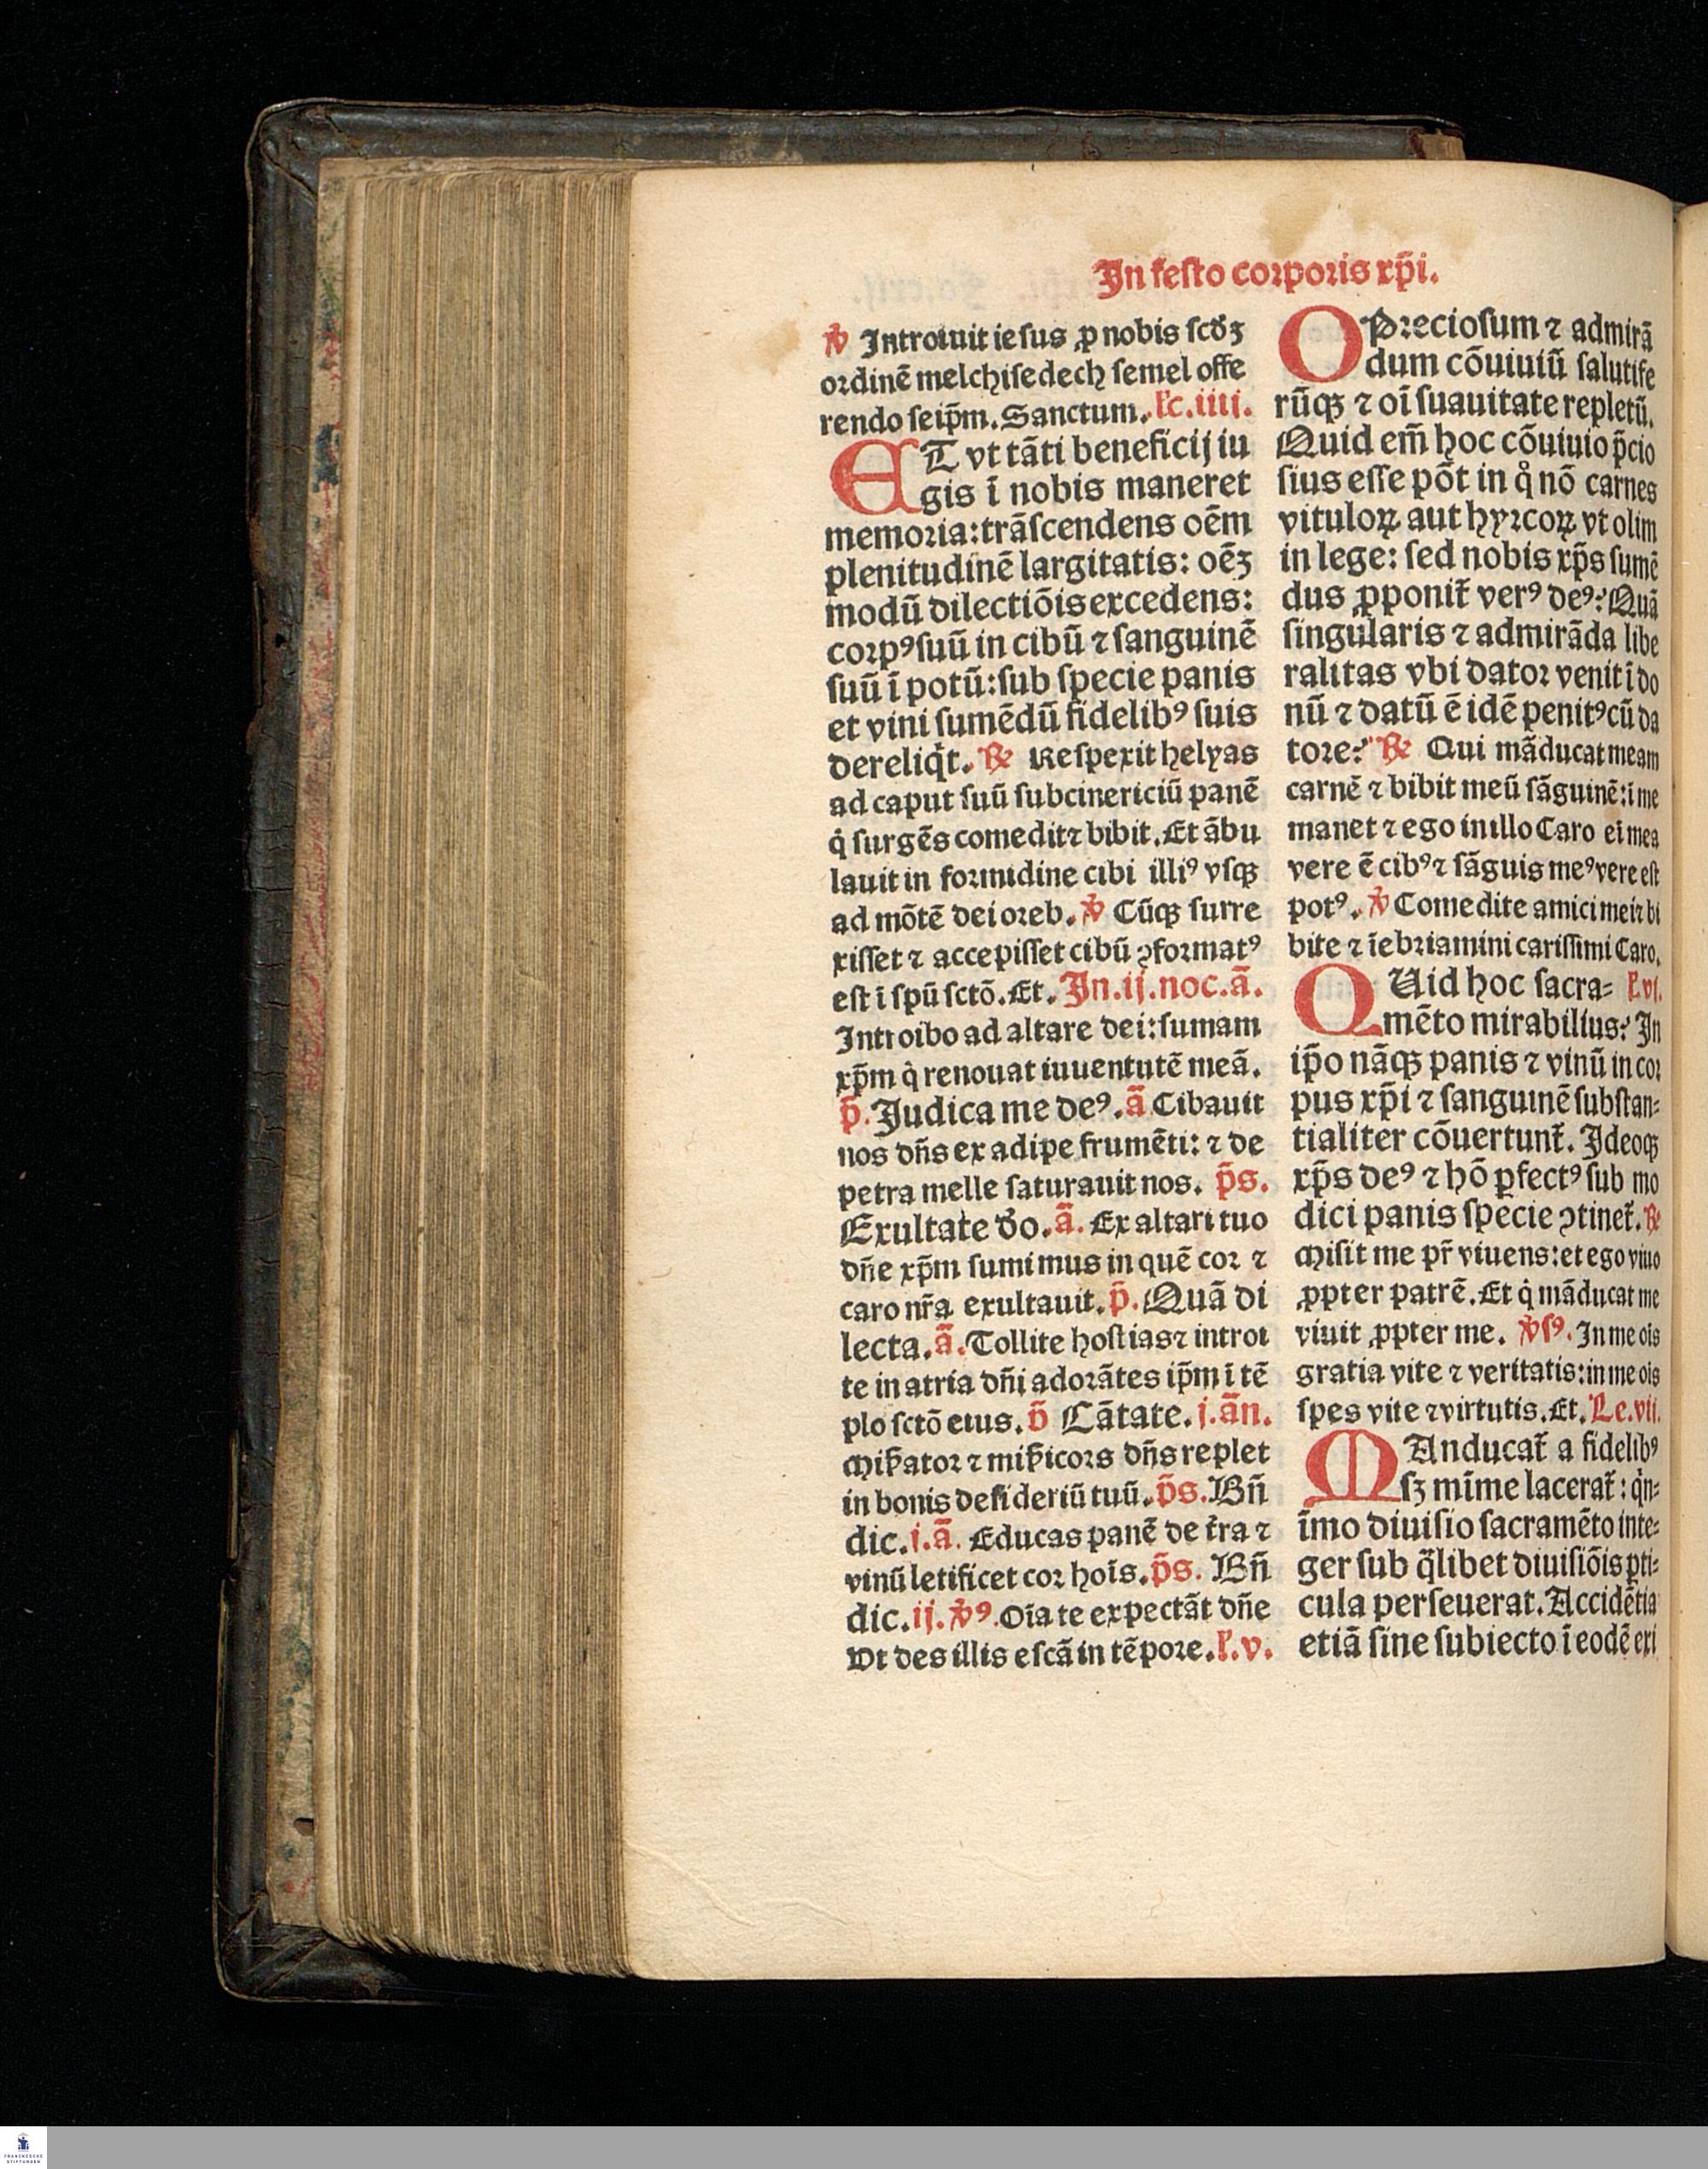 In festo corporis xp̄i.
℣ Introiuit iesus ꝓ nobis scd̓ꝫ
ordinē melchisedech semel offe
rendo seip̄m. Sanctum. Lc̓.iiij.
ET vt tāti beneficij iu
gis ī nobis maneret
memoria: trāscendens oēm
plenitudinē largitatis: oēꝫ
modū dilectiōis excedens:
corpꝰ suū in cibū ⁊ sanguinē
suū ī potū: sub specie panis
et vini sumēdū fidelibꝰ suis
dereliq̇t. ℞ Respexit helyas
ad caput suū subcinericiū panē
q̇ surgēs comedit ⁊ bibit. Et ābu
lauit in formidine cibi illiꝰ vsqꝫ
ad mōtē dei oreb. ℣ Cūqꝫ surre
xisset ⁊ accepisset cibū ꝯformatꝰ
est ī spū sctō. Et. In.ij.noc.ā.
Introibo ad altare dei: sumam
xp̄m q̇ renouat iuuentutē meā.
p̄. Judica me deꝰ. ā Cibauit
nos dn̄s ex adipe frumēti: ⁊ de
petra melle saturauit nos. p̄s.
Exultate d̓o. ā. Ex altari tuo
dn̄e xp̄m sumimus in quē cor ⁊
caro nr̄a exultauit. p̄. Quā di
lecta. ā. Tollite hostias ⁊ introi
te in atria dn̄i adorātes ip̄m ī tē
plo sctō eius. p̄ Cātate. j. ān.
Mis̓ator ⁊ mis̓icors dn̄s replet
in bonis desideriū tuū. p̄s. Bn̄
dic. i. ā. Educas panē de t̓ra ⁊
vinū letificet cor hoīs. p̄s. Bn̄
dic. ij. ℣ꝰ. Oīa te expectāt dn̄e
Vt des illis escā in tēpore. L̓.v.
O Preciosum ⁊ admirā
dum cōuiuiū salutife
rūqꝫ ⁊ oī suauitate repletū.
Quid em̄ hoc cōuiuio p̄cio
sius esse pōt in q̊ nō carnes
vituloꝝ aut hyrcoꝝ vt olim
in lege: sed nobis xp̄s sumē
dus ꝓponit̓ verꝰ deꝰ? Quā
singularis ⁊ admirāda libe
ralitas vbi dator venit ī do
nū ⁊ datū ē idē penitꝰ cū da
tore? ℞ Qui māducat meam
carnē ⁊ bibit meū sāguinē: ī me
manet ⁊ ego in illo Caro em̄ mea
vere ē cibꝰ ⁊ sāguis meꝰ vere est
potꝰ. ℣ Comedite amici mei ⁊ bi
bite ⁊ īebriamini carissimi Caro.
QUid hoc sacra⸗ L̓.vj.
mēto mirabilius? In
ip̄o nāqꝫ panis ⁊ vinū in cor
pus xp̄i ⁊ sanguinē substan⸗
tialiter cōuertunt̓. Ideoqꝫ
xp̄s deꝰ ⁊ hō ꝑfectꝰ sub mo
dici panis specie ꝯtinet̓. ℞
Misit me pr̄ viuens: et ego viuo
ꝓpter patrē. Et q̇ māducat me
viuit ꝓpter me. ℣sꝰ. In me oīs
gratia vite ⁊ veritatis: in me oīs
spes vite ⁊ virtutis. Et. Le.vij.
MAnducat̓ a fidelibꝰ
sꝫ mīme lacerat̓: q̇n⸗
īmo diuisio sacramēto inte⸗
ger sub q̄libet diuisiōis pti⸗
cula perseuerat. Accidētia
etiā sine subiecto ī eodē exi